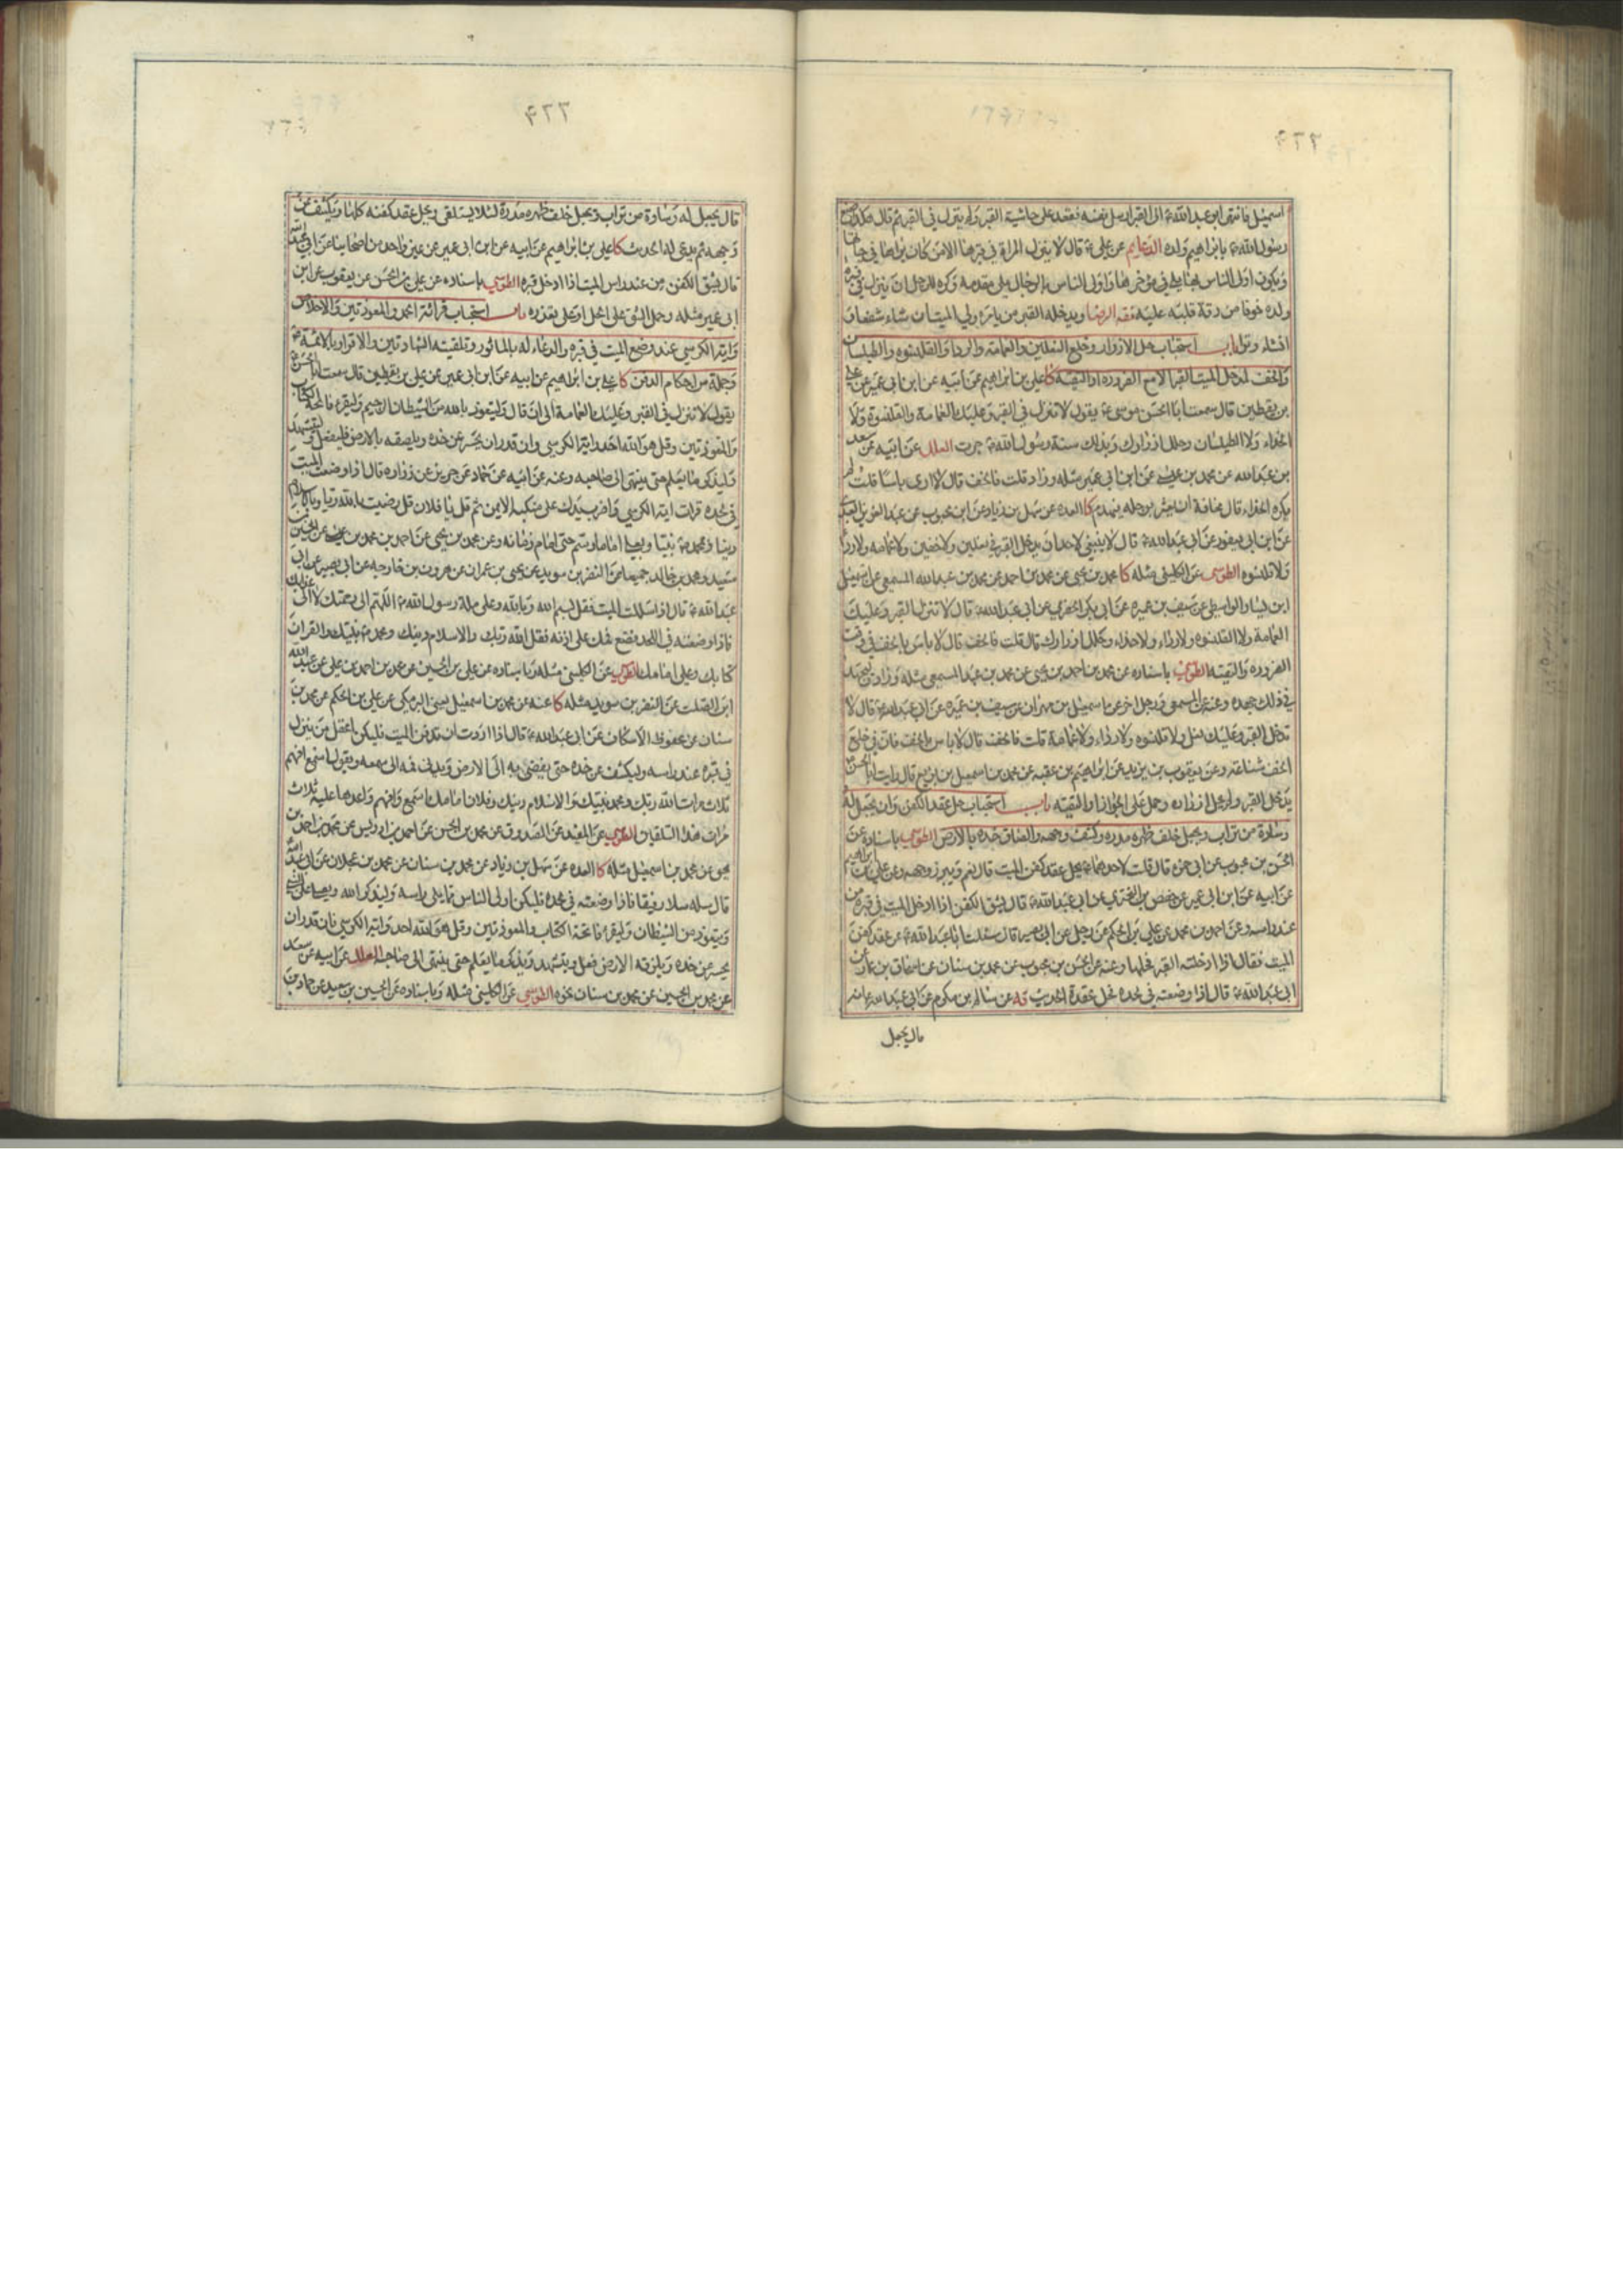 اسمعيل فانتهى ابو عبد الله ع الى القبر ارسل نفسه فقعد على حاشية القبر ولم ينزل في القبر ثم قال هكذا صنع
رسول الله ص بابراهيم ولده الدعايم عن علي ع قال لا ينزل المراة في قبرها الا من كان يراها في حياتها
ويكون اولى الناس بها يلي مؤخرها واولى الناس بالرجال يلي مقدمه وكره للرجل ان ينزل في قبر
ولده خوفا من رقة قلبه عليه فقه الرضا ويدخله القبر من يامره ولي الميت ان شاء شفعا و
ان شاء وترا باب استحباب حل الازرار وخلع النعلين والعمامة والردا والقلنسوه والطيلسان
والخف لمدخل الميت القبر الا مع الضروره او التقية كا علي بن ابراهيم عن ابيه عن ابن ابي عمير عن علي
بن يقطين قال سمعت ابا الحسن موسى ع يقول لا تنزل في القبر وعليك العمامة والقلنسوة ولا
الحذاء ولا الطيلسان وحلل ازرارك وبذلك سنة رسول الله ص جرت العلل عن ابيه عن سعد
بن عبد الله عن محمد بن عيسى عن ابن ابي عمير مثله وزاد قلت فالخف قال لا ارى باسا قلت لم
يكره الحذاء قال مخافة ان يعثر برجله فيهدم كا العده عن سهل بن زياد عن ابن محبوب عن عبد العزيز العبدي
عن ابن ابي يعفور عن ابي عبد الله ع قال لا ينبغي لاحد ان يدخل القبر في نعلين ولا خفين ولا عمامه ولا ردا
ولا قلنسوه الطوسي عن الكليني مثله كا محمد بن يحيى عن محمد بن احمد عن محمد بن عبد الله المسمعي عن اسمعيل
ابن يسار الواسطي عن سيف بن عميره عن ابي بكر الحضرمي عن ابي عبد الله ع قال لا تنزل القبر وعليك
العمامة ولا القلنسوه ولا رداء ولا حذاء وحلل ازرارك قال قلت فالخف قال لا باس بالخف في وقت
الضروره والتقيه الطوسي باسناده عن محمد بن احمد بن يحيى عن محمد بن عبد الله المسمعي مثله وزاد وليجهد
في ذلك جهده وعنه عن المسمعي ورجل اخر عن اسمعيل بن مهران عن سيف بن عميره عن ابي عبد الله ع قال لا
تدخل القبر وعليك نعل ولا قلنسوه ولا رداء ولا عمامة قلت فالخف قال لا باس بالخف فان في خلع
الخف شناعة وعن يعقوب بن يزيد عن ابراهيم بن عقبه عن محمد بن اسمعيل بن بزيع قال رايت ابا الحسن ع
يدخل القبر ولم يحل ازراره وحمل على الجواز او التقيه باب استحباب حل عقد الكفن وان يجعل له
وسادة من تراب ويجعل خلف ظهره مدره وكشف وجهه والصاق خده بالارض الطوسي باسناده عن
الحسن بن محبوب عن ابي حمزه قال قلت لاحدهما ع يحل عقد كفن الميت قال نعم ويبرز وجهه وعن علي بن ابراهيم
عن ابيه عن ابن ابي عمير عن حفص بن البختري عن ابي عبد الله ع قال يشق الكفن اذا ادخل الميت في قبره من
عند راسه وعن احمد بن محمد عن علي بن الحكم عن رجل عن ابي بصير قال سئلت ابا عبد الله ع عن عقد كفن
الميت فقال اذا ادخلته القبر فحلها وعنه عن الحسن بن محبوب عن محمد بن سنان عن اسحاق بن عمار عن
ابي عبد الله ع قال اذا وضعته في لحده فحل عقده الحديث قه عن سالم بن مكرم عن ابي عبد الله ع انه
قال يجعل
٤٢٢
قال يجعل له وسادة من تراب ويجعل خلف ظهره مدرة لئلا يستلقى ويحل عقد كفنه كلها ويكشف عن
وجهه ثم يدعى له الحديث كا علي بن ابراهيم عن ابيه عن ابن ابي عمير عن غير واحد من اصحابنا عن ابي عبد الله
قال يشق الكفن من عند راس الميت اذا ادخل قبره الطوسي باسناده عن علي بن الحسن عن يعقوب عن ابن
ابي عمير مثله وحمل الشق على الحل او على تعذره باب استحباب قرائة الحمد والمعوذتين والاخلاص
واية الكرسي عند وضع الميت في قبره والدعاء له بالماثور وتلقينه الشهادتين والاقرار بالائمة ع
وجملة من احكام الدفن كا علي بن ابراهيم عن ابيه عن ابن ابي عمير عن علي بن يقطين قال سمعت ابا الحسن ع
يقول لا تنزل في القبر وعليك العمامة الى ان قال وليتعوذ بالله من الشيطان الرجيم وليقرء فاتحة الكتاب
والمعوذتين وقل هو الله احد واية الكرسي وان قدر ان يحسر عن خده ويلصقه بالارض فليفعل وليتشهد
وليذكر ما يعلم حتى ينتهي الى صاحبه وعنه عن ابيه عن حماد عن حريز عن زراره قال اذا وضعت الميت
في لحده قرات اية الكرسي واضرب يدك على منكبه الايمن ثم قل يا فلان قل رضيت بالله ربا وبالاسلام
دينا وبمحمد ص نبيا وبعلي اماما وتسم حتى امام زمانه وعن محمد بن يحيى عن احمد بن محمد بن عيسى عن الحسين بن
سعيد ومحمد بن خالد جميعا عن النضر بن سويد عن يحيى بن عمران عن هرون بن خارجه عن ابي بصير عن ابي
عبد الله ع قال اذا سللت الميت فقل بسم الله وبالله وعلى ملة رسول الله ص اللهم الى رحمتك لا الى عذابك
فاذا وضعته في اللحد فضع فمك على اذنه فقل الله ربك والاسلام دينك ومحمد ص نبيك والقران
كتابك وعلي امامك الطوسي عن الكليني مثله وباسناده عن علي بن الحسين عن محمد بن احمد بن علي عن عبد الله
ابن الصلت عن النضر بن سويد مثله كا عنه عن محمد بن اسمعيل يعني البرمكي عن علي بن الحكم عن محمد بن
سنان عن محفوظ الاسكاف عن ابي عبد الله ع قال اذا اردت ان تدفن الميت فليكن اعقل من ينزل
في قبره عند راسه وليكشف عن خده حتى يفضي به الى الارض ويدني فمه الى سمعه ويقول اسمع افهم
ثلاث مرات الله ربك ومحمد نبيك والاسلام دينك وفلان امامك اسمع وافهم واعدها عليه ثلاث
مرات هذا التلقين الطوسي عن المفيد عن الصدوق عن محمد بن الحسن عن احمد بن ادريس عن محمد بن احمد بن
يحيى عن محمد بن اسمعيل مثله كا العده عن سهل بن زياد عن محمد بن سنان عن محمد بن عجلان عن ابي عبد الله
قال سله سلا رفيقا فاذا وضعته في لحده فليكن اولى الناس مما يلي راسه وليذكر الله ويصلي على النبي
ويتعوذ من الشيطان وليقرء فاتحة الكتاب والمعوذتين وقل هو الله احد واية الكرسي فان قدر ان
يحسر عن خده ويلزقه الارض فعل ويتشهد ويذكر ما يعلم حتى ينتهي الى صاحبه العلل عن ابيه عن سعد
عن محمد بن الحسين عن محمد بن سنان نحوه الطوسي عن الكليني مثله وباسناده عن الحسين بن سعيد عن حماد بن